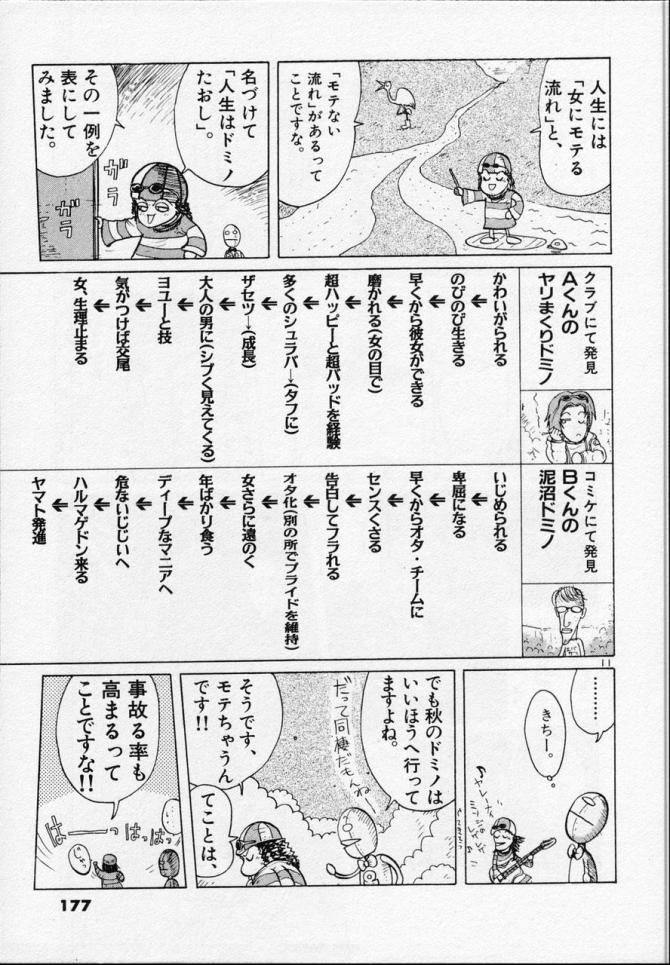 人生には
「女にモテる
流れ」と、
「モテない
流れ」があるって
ことですな。
名づけて
「人生はドミノ
たおし」。
その一例を
表にして
みました。
ガラ
ガラ
クラブにて発見
Aくんの
ヤリまくりドミノ
かわいがられる
↓
のびのび生きる
↓
早くから彼女ができる
↓
磨かれる(女の目で)
↓
超ハッピーと超バッドを経験
↓
多くのシュラバ→(タフに)
↓
ザセツ→(成長)
↓
大人の男に(シブく見えてくる)
↓
ヨユーと技
↓
気がつけば交尾
↓
女、生理止まる
コミケにて発見
Bくんの
泥沼ドミノ
いじめられる
↓
卑屈になる
↓
早くからオタ・チームに
↓
センスくさる
↓
告白してフラれる
↓
オタ化(別の所でプライドを維持)
↓
女さらに遠のく
↓
年ばかり食う
↓
ディープなマニアへ
↓
危ないじじいへ
↓
ハルマゲドン来る
↓
ヤマト発進
………
きちー。
でも秋のドミノは
いいほうへ行って
ますよね。
だって同棲だもんねー
そうです、
モテちゃうん
です!!
てことは、
事故る率も
高まるって
ことですな!!
はーっはっはっ
177